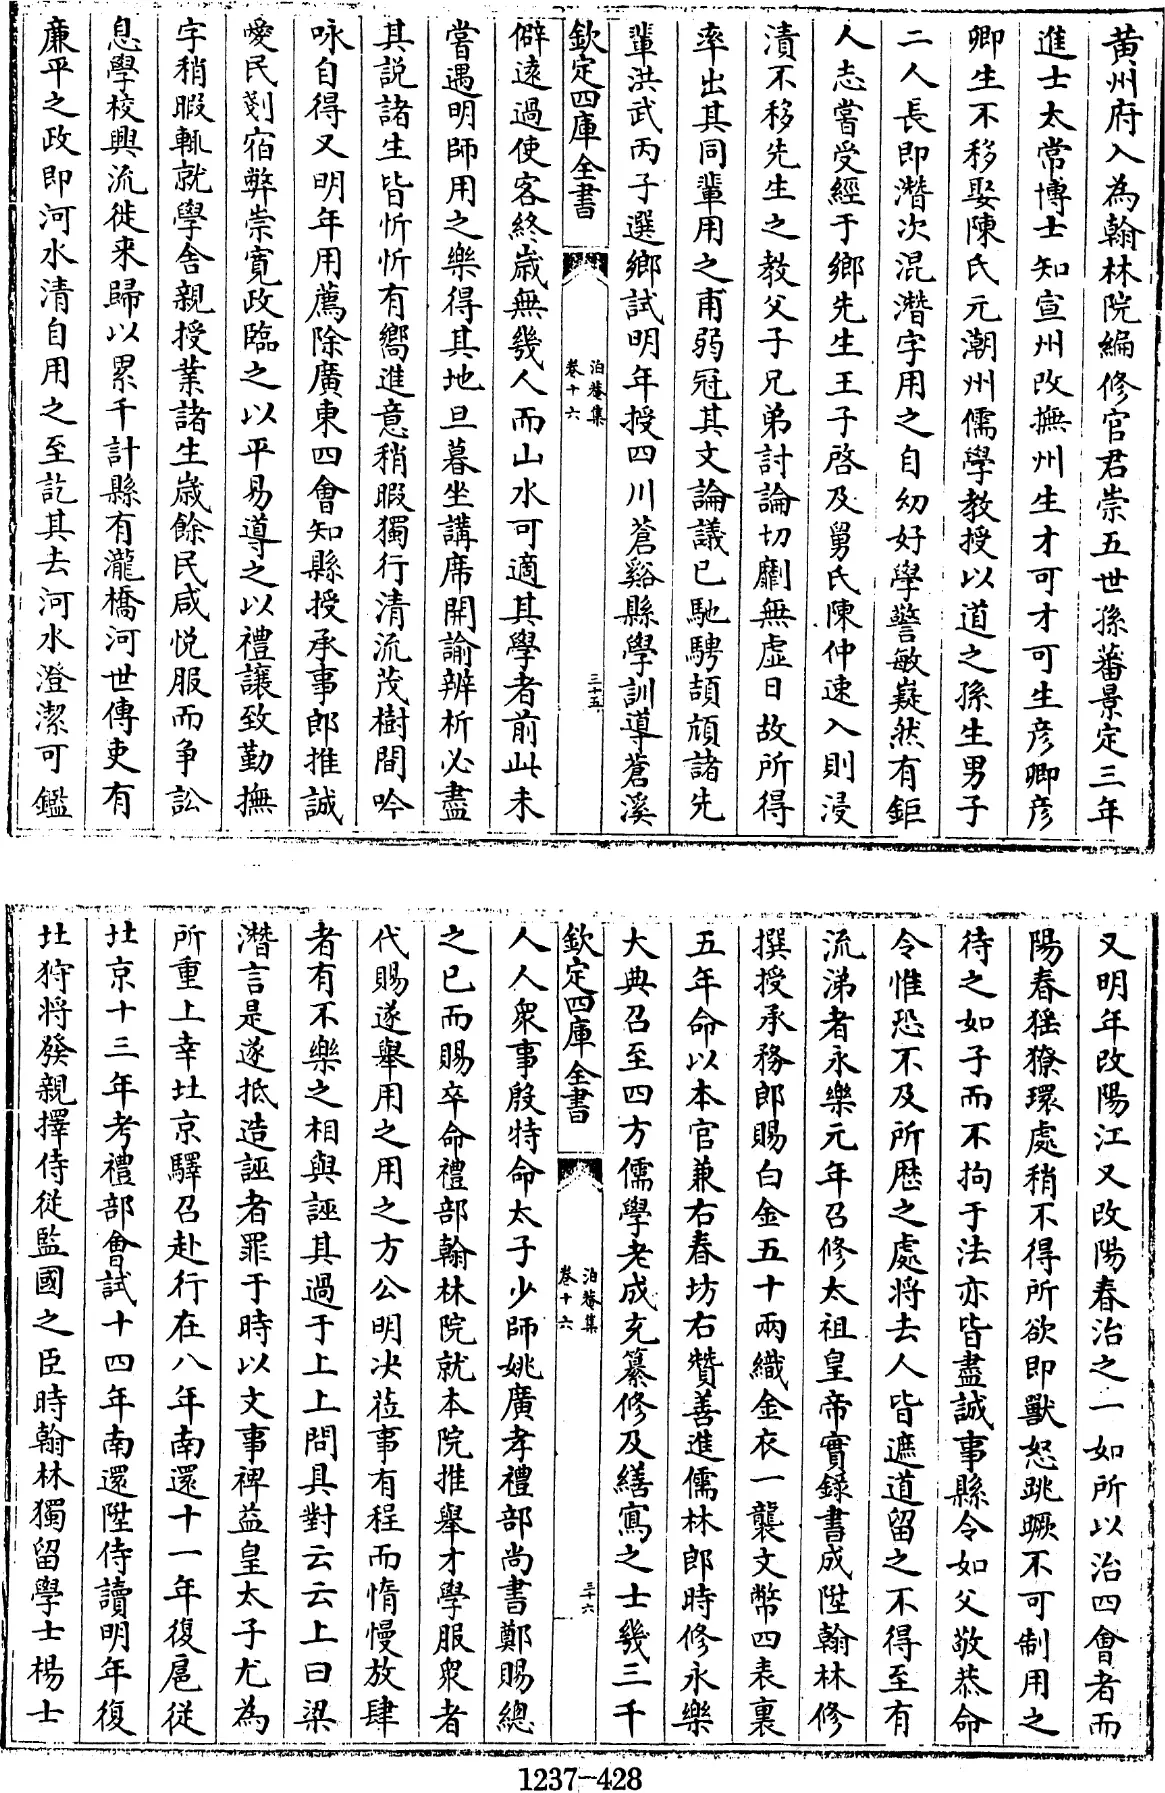 黄州府入為翰林院編修官君崇五世孫蕃景定三年
進士太常博士知宣州改撫州生才可才可生彦卿彦
卿生不移娶陳氏元潮州儒學教授以道之孫生男子
二人長即潛次混潛字用之自幼好學警敏嶷然有鉅
人志嘗受經于鄉先生王子啓及舅氏陳仲速入則浸
漬不移先生之教父子兄弟討論切劘無虚日故所得
率出其同輩用之甫弱冠其文論議已馳騁頡頏諸先
輩洪武丙子選鄉試明年授四川蒼谿縣學訓導蒼溪
欽定四庫全書
泊菴集
卷十六
三十五
僻遠過使客終歲無幾人而山水可適其學者前此未
嘗遇明師用之樂得其地旦暮坐講席開諭辨析必盡
其説諸生皆忻忻有嚮進意稍暇獨行清流茂樹間吟
咏自得又明年用薦除廣東四會知縣授承事郎推誠
愛民剗宿弊崇寛政臨之以平易導之以禮讓致勤撫
字稍暇輒就學舍親授業諸生歳餘民咸悦服而争訟
息學校興流徙來歸以累千計縣有瀧橋河世傳吏有
廉平之政即河水清自用之至訖其去河水澄潔可鑑
又明年改陽江又改陽春治之一如所以治四會者而
陽春猺獠環處稍不得所欲即獸怒跳蹶不可制用之
待之如子而不拘于法亦皆盡誠事縣令如父敬恭命
令惟恐不及所歴之處將去人皆遮道留之不得至有
流涕者永樂元年召修太祖皇帝實錄書成陞翰林修
撰授承務郎賜白金五十兩織金衣一襲文幣四表裏
五年命以本官兼右春坊右贊善進儒林郎時修永樂
大典召至四方儒學老成充纂修及繕寫之士幾三千
欽定四庫全書
泊菴集
卷十六
三十六
人人衆事殷特命太子少師姚廣孝禮部尚書鄭賜總
之已而賜卒命禮部翰林院就本院推舉才學服衆者
代賜遂舉用之用之方公明决莅事有程而惰慢放肆
者有不樂之相與誣其過于上上問具對云云上曰梁
潛言是遂抵造誣者罪于時以文事裨益皇太子尤為
所重上幸北京驛召赴行在八年南還十一年復扈従
北京十三年考禮部會試十四年南還陞侍讀明年復
北狩將發親擇侍從監國之臣時翰林獨留學士楊士
1237-428